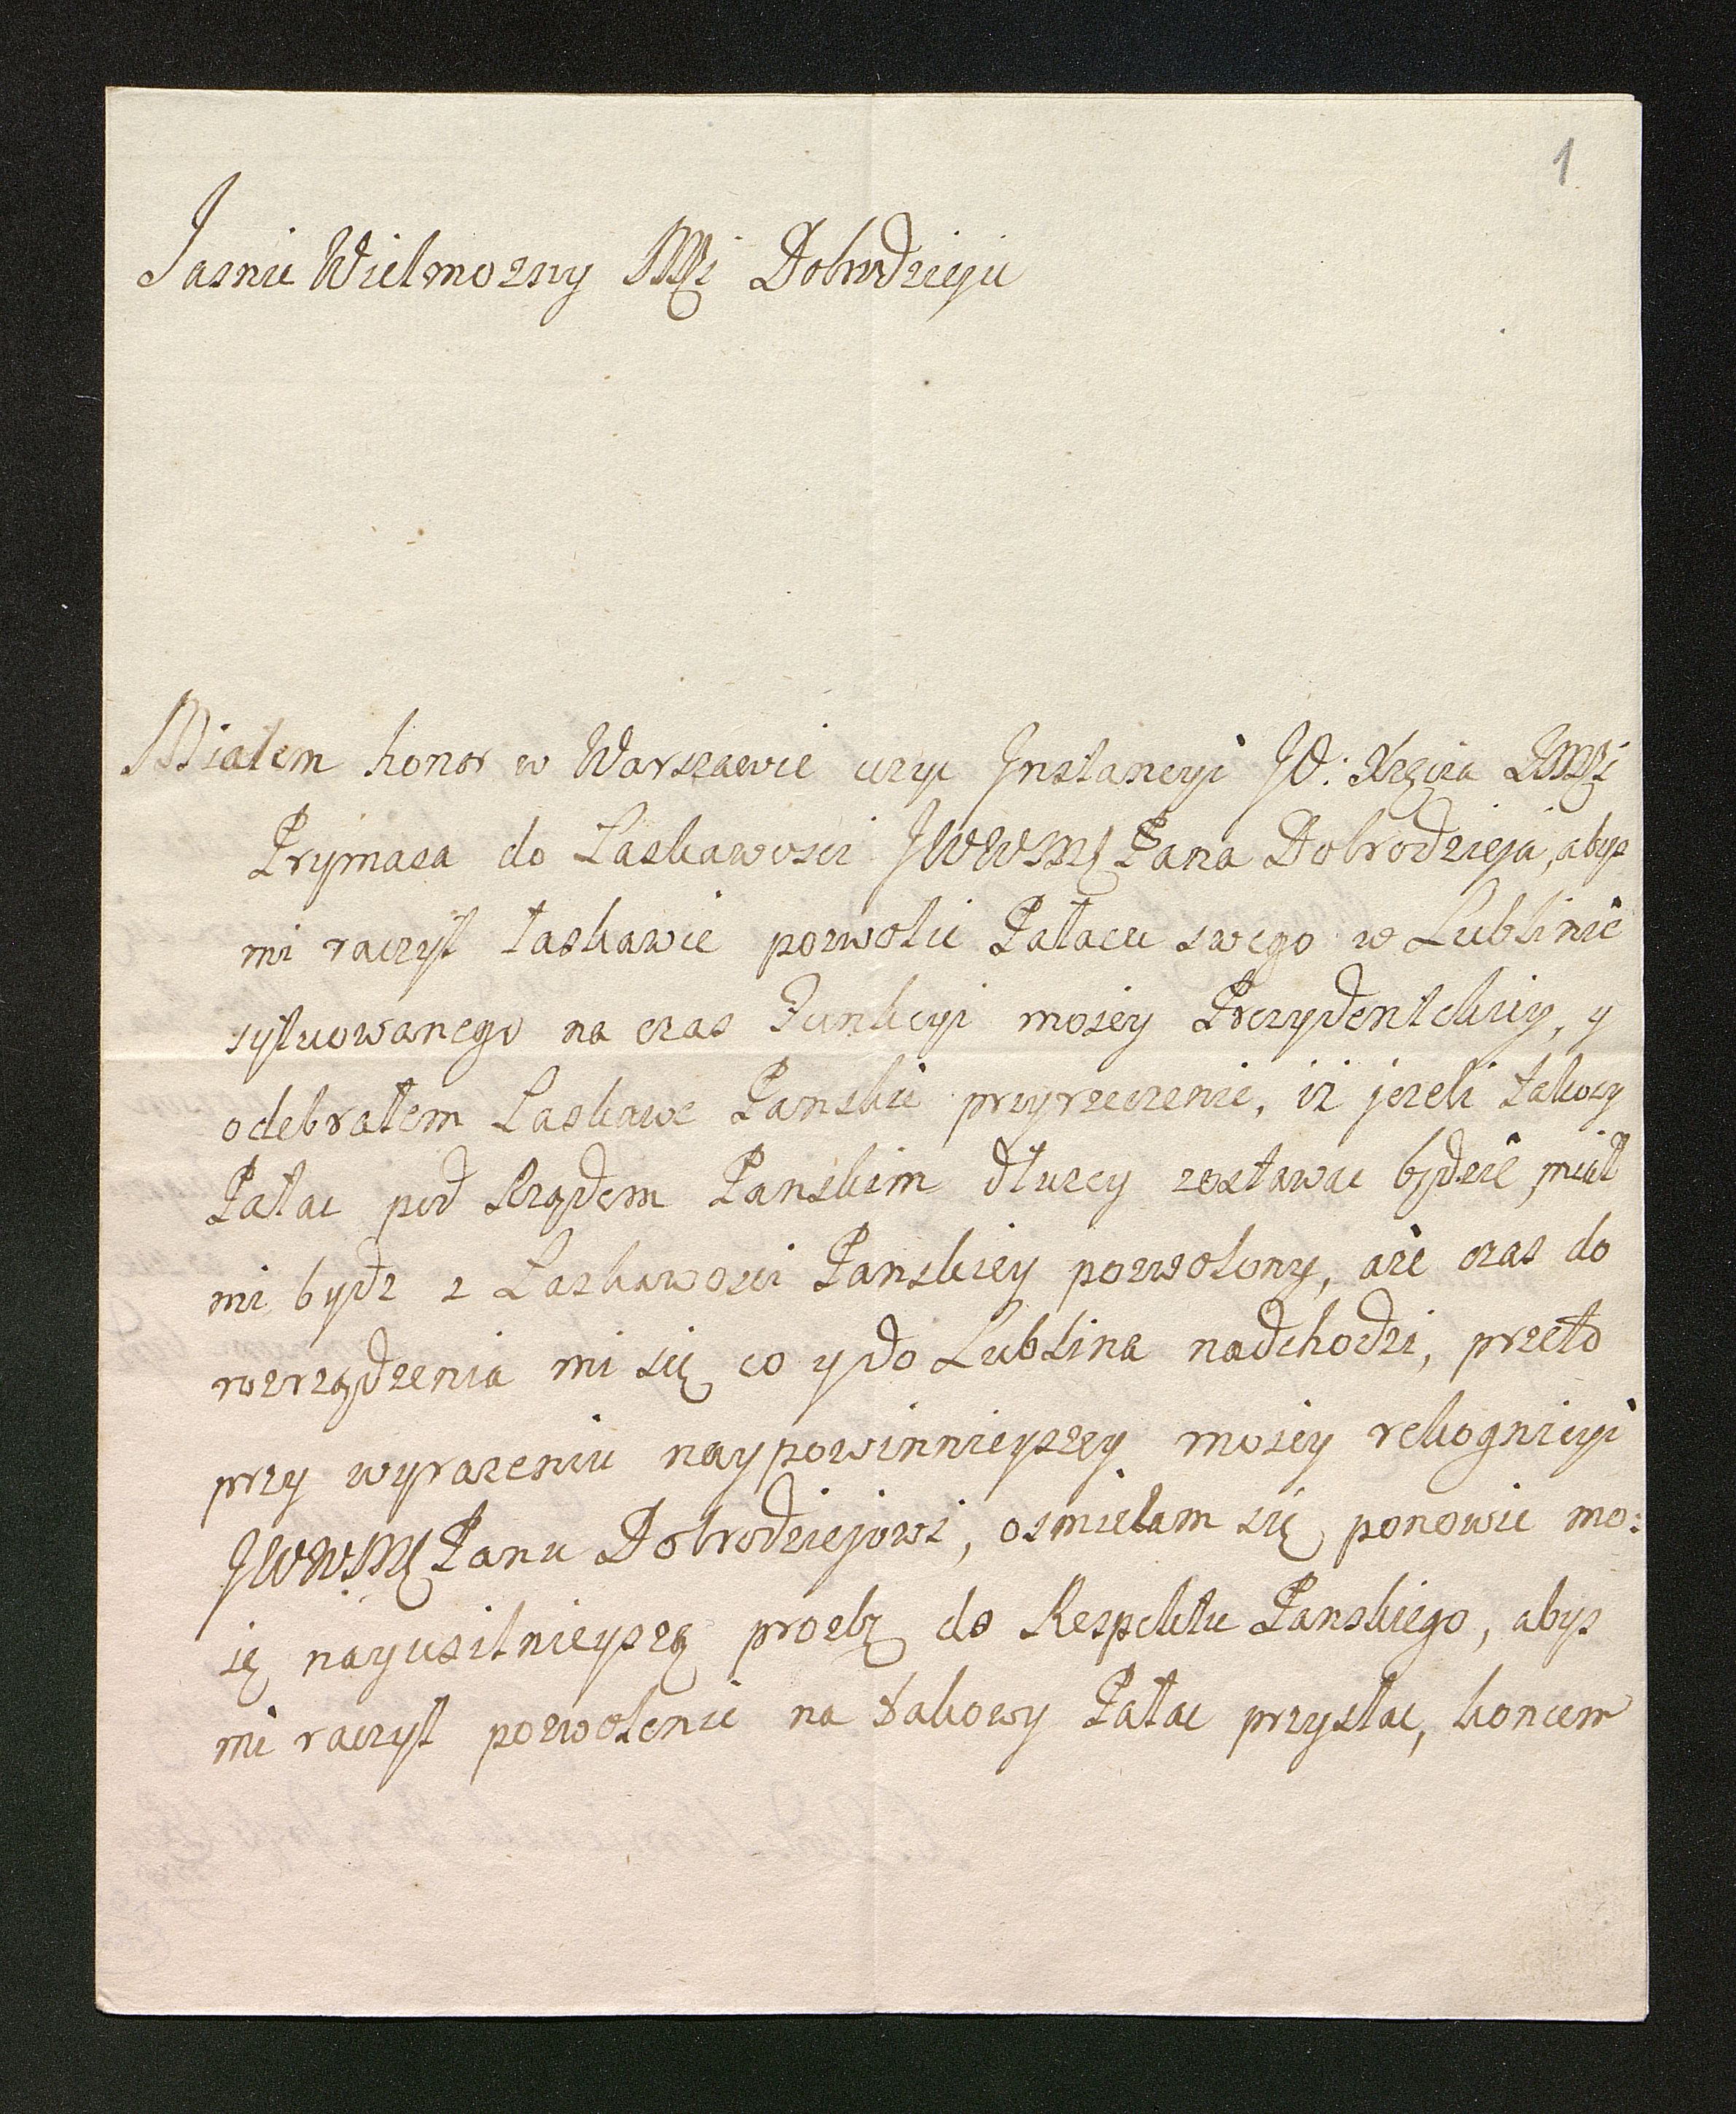 1
Jasnie Wielmozny Mći Dobrodzieju
Miałem honor w Warszawie uzyc Jnstancyi JO: Xręcia Jmći
Prymasa do Łaskawosci JWWMć Pana Dobrodzieja, abys
mi raczył łaskawie pozwolic Pałacu swego w Lublinie
sytuowanego na czas Funkcyi moiey Prezydentckiey, y
odebrałem Łaskawe Panskie przyrzeczenie, iż jezeli takowy
Pałac pod Rządem Panskim dłuzey zostawac będzie, miał
mi bydz z Łaskawosci Panskiey pozwolony, aże czas do
rozrządzenia mi się co y do Lublina nadchodzi, przeto
przy wyrazeniu naypowinnieyszey moiey rekognicyi
JWWMć Panu Dobrodziejowi, osmielam się ponowic mo:
ię nayusilnieyszą prozbę do Respektu Panskiego, abys
mi raczył pozwolenie na takowy Pałac przysłac, koncem